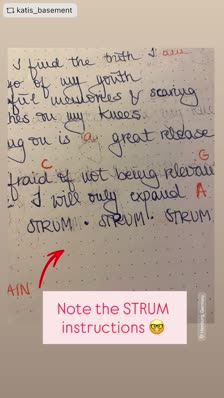 katis_basement
I find the truth I am
go of my youth
ful memories & searing
hes on my knees
ng on is a great release
C G
fraid of not being relevan
I will only expand A
STRUM • STRUM • STRUM
AIN
Note the STRUM
instructions 🤓
Hamburg, Germany